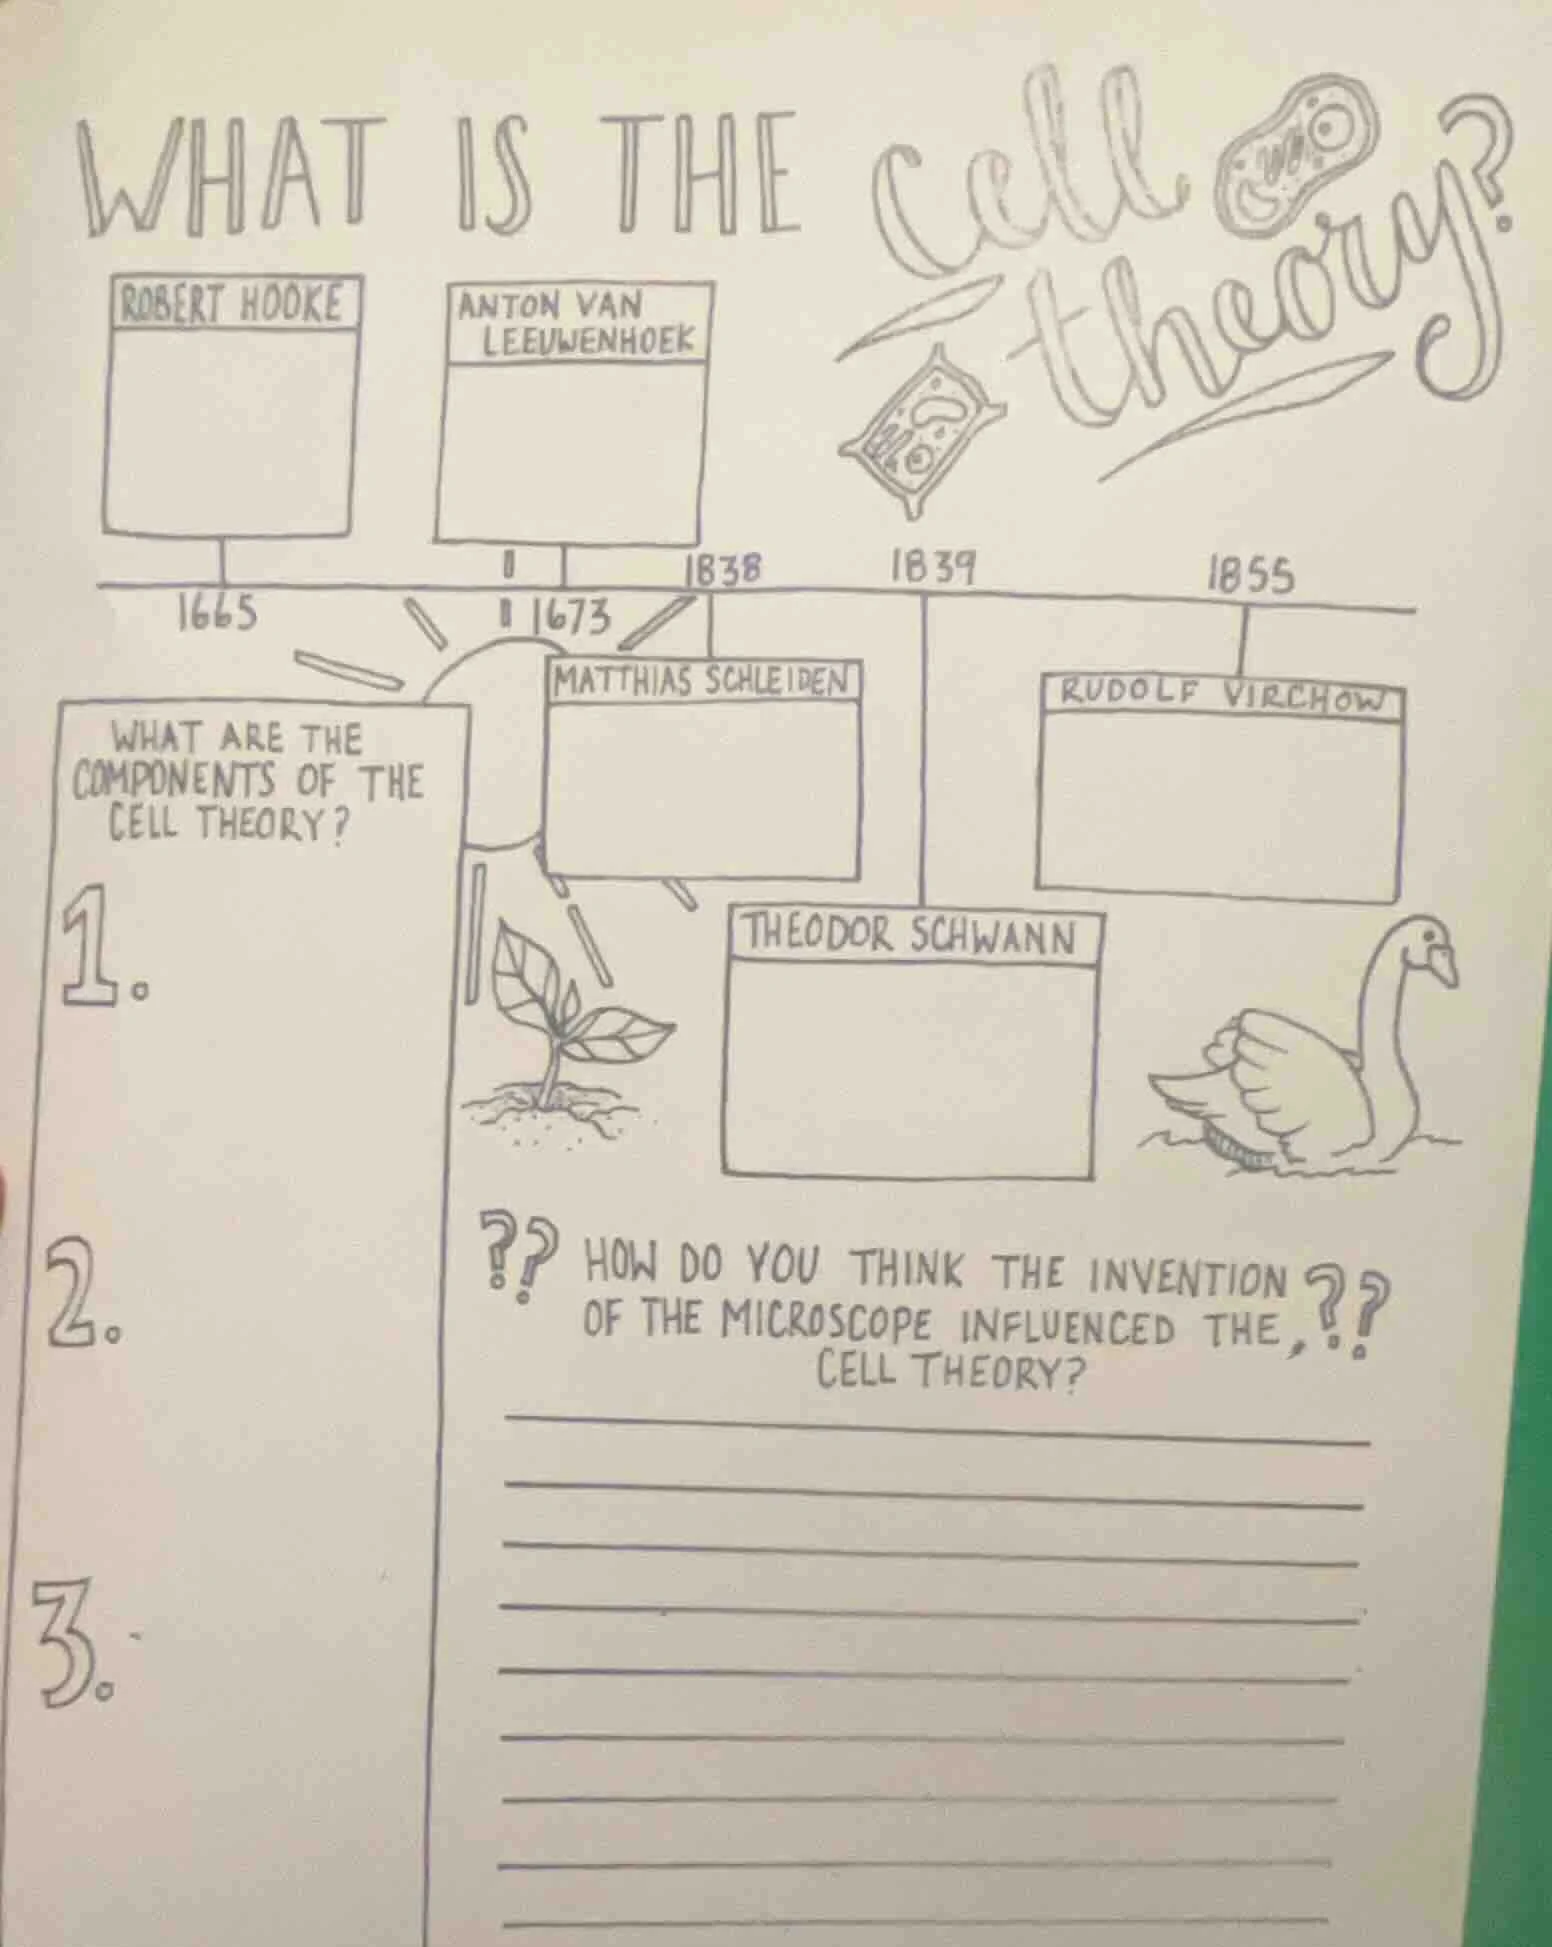 WHAT IS THE cell
theory?
ROBERT HOOKE
ANTON VAN
LEEUWENHOEK
1838
1839
1855
1665
1673
MATTHIAS SCHLEIDEN
RUDOLF VIRCHOW
WHAT ARE THE
COMPONENTS OF THE
CELL THEORY?
THEODOR SCHWANN
1.
2.
3.
?? HOW DO YOU THINK THE INVENTION ??
OF THE MICROSCOPE INFLUENCED THE,
CELL THEORY?